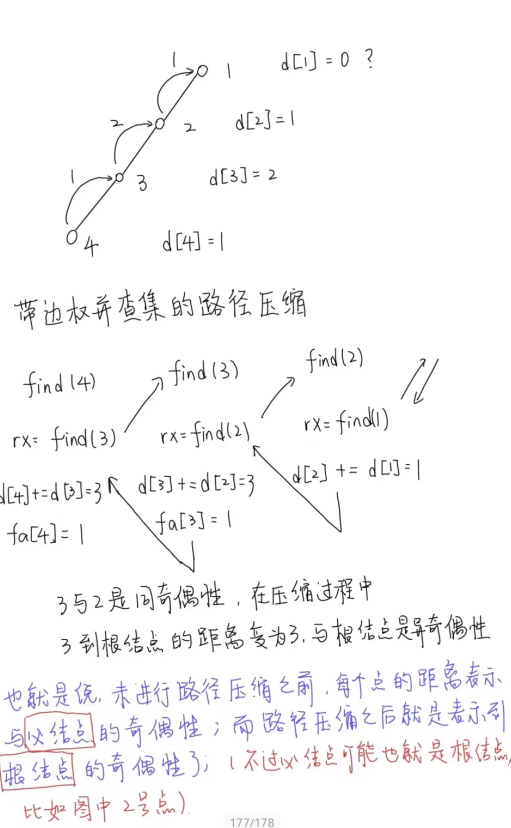 1 1 d[1] = 0 ?
2 2 d[2]=1
1 3 d[3] = 2
4 d[4] = 1
带边权并查集的路径压缩
find(4) find(3) find(2)
rx= find(3) rx=find(2) rx= find(1)
d[4]+=d[3]=3 d[3]+=d[2]=3 d[2] += d[1]=1
fa[4]= 1 fa[3]= 1
3与2是同奇偶性，在压缩过程中
3到根结点的距离变为3,与根结点是异奇偶性
也就是说,未进行路径压缩之前,每个点的距离表示
与父结点的奇偶性；而路径压缩之后就是表示到
根结点的奇偶性了,（不过父结点可能也就是根结点,
比如图中2号点).
177/178